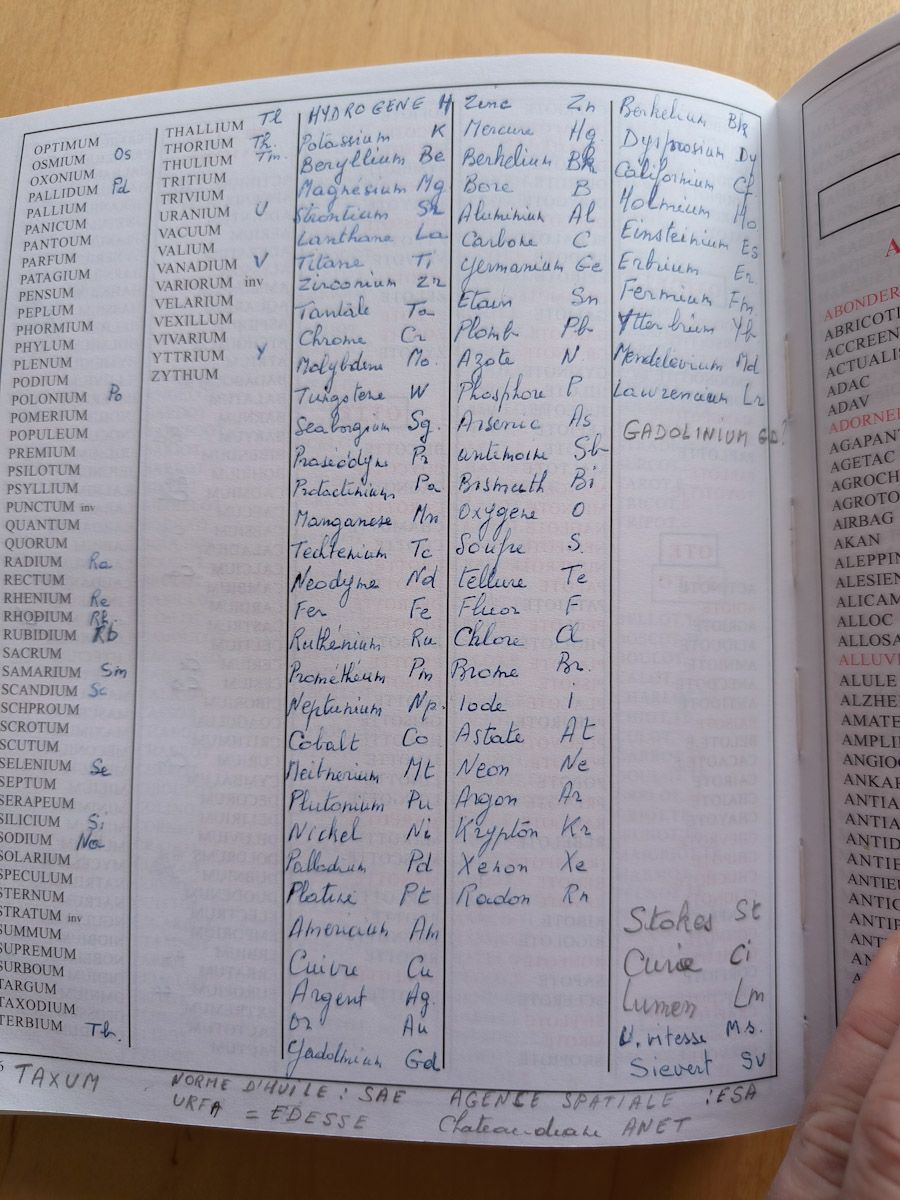 OPTIMUM
OSMIUM Os
OXONIUM
PALLIDUM Pd
PALLIUM
PANICUM
PANTOUM
PARFUM
PATAGIUM
PENSUM
PEPLUM
PHORMIUM
PHYLUM
PLENUM
PODIUM
POLONIUM Po
POMERIUM
POPULEUM
PREMIUM
PSILOTUM
PSYLLIUM
PUNCTUM inv
QUANTUM
QUORUM
RADIUM Ra
RECTUM
RHENIUM Re
RHODIUM Rh
RUBIDIUM Rb
SACRUM
SAMARIUM Sm
SCANDIUM Sc
SCHPROUM
SCROTUM
SCUTUM
SELENIUM Se
SEPTUM
SERAPEUM
SILICIUM Si
SODIUM Na
SOLARIUM
SPECULUM
STERNUM
STRATUM inv
SUMMUM
SUPREMUM
SURBOUM
TARGUM
TAXODIUM
TERBIUM Tb.
THALLIUM Tl
THORIUM Th.
THULIUM Tm.
TRITIUM
TRIVIUM
URANIUM U
VACUUM
VALIUM
VANADIUM V
VARIORUM inv
VELARIUM
VEXILLUM
VIVARIUM
YTTRIUM Y
ZYTHUM
HYDROGENE H
Potassium K
Beryllium Be
Magnésium Mg
Strontium Sr
Lanthane La
Titane Ti
Zirconium Zr
Tantale Ta
Chrome Cr
Molybdene Mo.
Tungstene W
Seaborgium Sg.
Praseodyme Pr
Protactinium Pa
Manganese Mn
Techtenium Tc
Neodyme Nd
Fer Fe
Ruthénium Ru
Prométhéum Pm
Neptunium Np.
Cobalt Co
Meitnerium Mt
Plutonium Pu
Nickel Ni
Palladium Pd
Platine Pt
Americium Am
Cuivre Cu
Argent Ag.
Or Au
Gadolinium Gd
Zinc Zn
Mercure Hg
Berkelium Bk
Bore B
Aluminium Al
Carbone C
Germanium Ge
Etain Sn
Plomb Pb
Azote N
Phosphore P
Arsenic As
antimoine Sb
Bismuth Bi
Oxygene O
Soufre S.
tellure Te
Fluor F
Chlore Cl
Brome Br.
Iode i
Astate At
Neon Ne
Argon Ar
Krypton Kr
Xenon Xe
Radon Rn
Berkelium Bk
Dysprosium Dy
Californium Cf
Holmium Ho.
Einsteinium Es
Erbium Er
Fermium Fm
Ytterbium Yb
Mendelevium Md
Lawrencium Lr
GADOLINIUM GD?
Stokes St
Curie Ci
Lumen Lm
U. vitesse Ms.
Sievert SV
TAXUM
NORME D'HUILE : SAE AGENCE SPATIALE : ESA
URFA = EDESSE
ANET
ABONDER
ABRICOTI
ACCREEN
ACTUALIS
ADAC
ADAV
ADORNE
AGAPANT
AGETAC
AGROCH
AGROTO
AIRBAG
AKAN
ALEPPIN
ALESIEN
ALICAM
ALLOC
ALLOSA
ALLUVI
ALULE
ALZHE
AMATE
AMPLI
ANGIO
ANKAR
ANTIA
ANTIA
ANTID
ANTIE
ANTIE
ANTIC
ANTIF